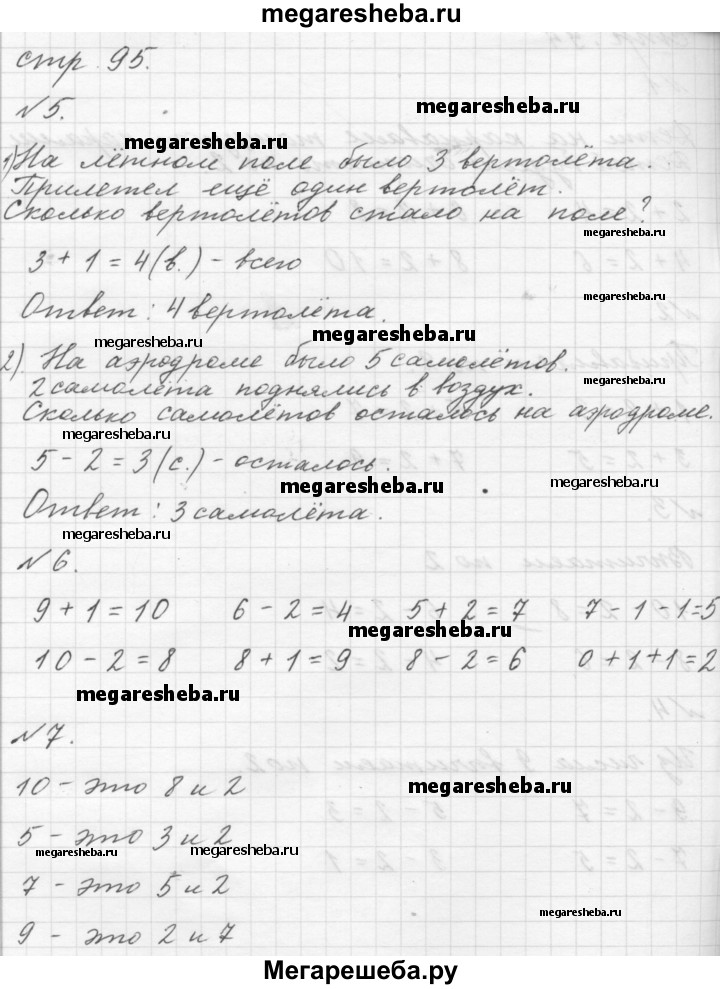 megaresheba.ru
стр. 95.
№5.
megaresheba.ru
megaresheba.ru
1) На лётном поле было 3 вертолёта.
Прилетел ещё один вертолёт.
Сколько вертолётов стало на поле?
megaresheba.ru
3 + 1 = 4 (в.) - всего
megaresheba.ru
Ответ: 4 вертолёта.
megaresheba.ru
megaresheba.ru
2) На аэродроме было 5 самолётов.
2 самолёта поднялись в воздух.
megaresheba.ru
Сколько самолётов осталось на аэродроме.
megaresheba.ru
5 - 2 = 3 (с.) - осталось.
megaresheba.ru
megaresheba.ru
Ответ: 3 самолёта.
megaresheba.ru
№6.
9 + 1 = 10 6 - 2 = 4 5 + 2 = 7 7 - 1 - 1 = 5
megaresheba.ru
10 - 2 = 8 8 + 1 = 9 8 - 2 = 6 0 + 1 + 1 = 2
megaresheba.ru
№7.
10 - это 8 и 2
megaresheba.ru
5 - это 3 и 2
megaresheba.ru
megaresheba.ru
7 - это 5 и 2
megaresheba.ru
9 - это 2 и 7
Мегарешеба.ру